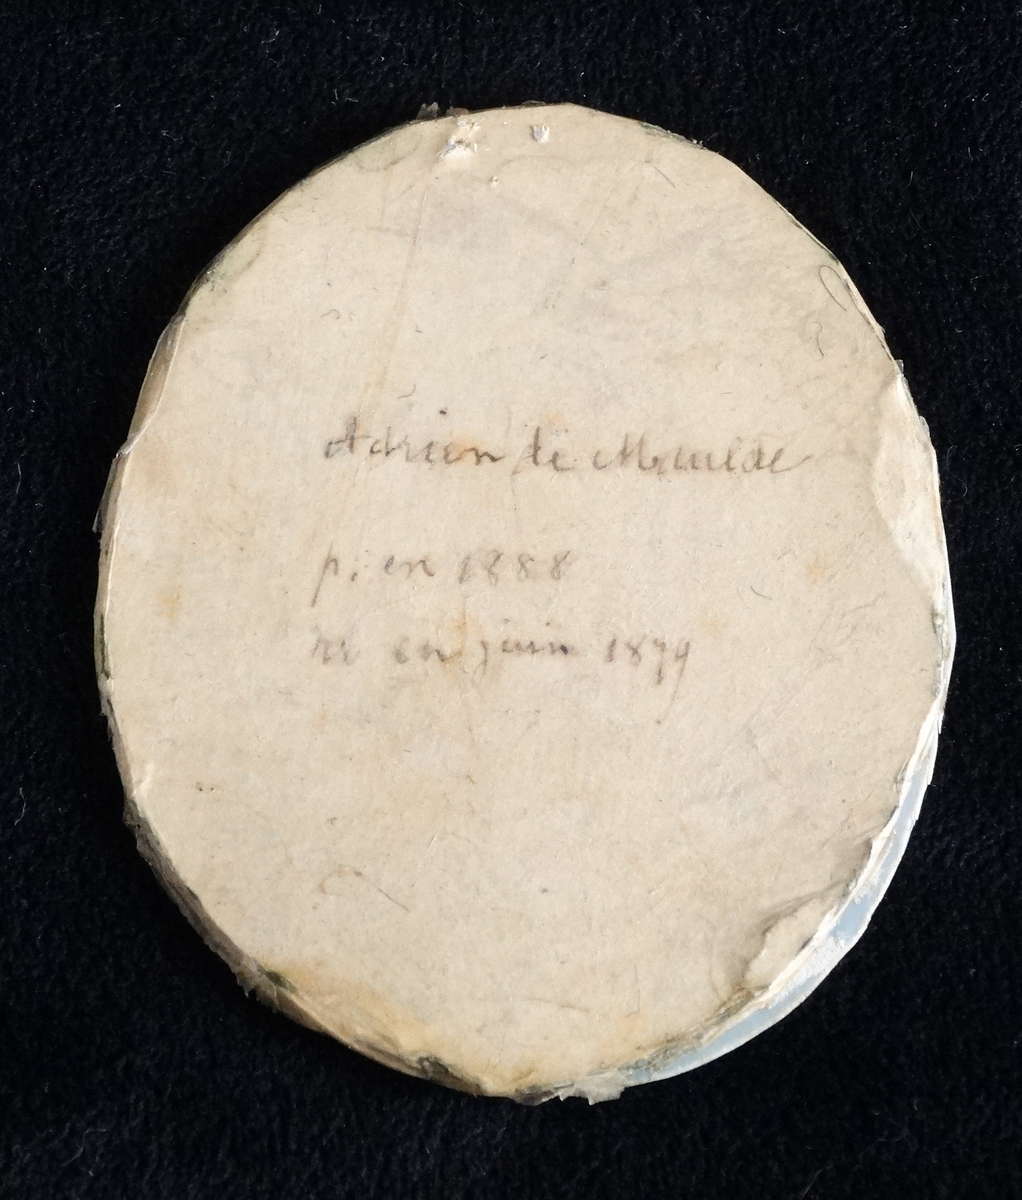 Adrien de Maulde
p. en 1888
né en juin 1879